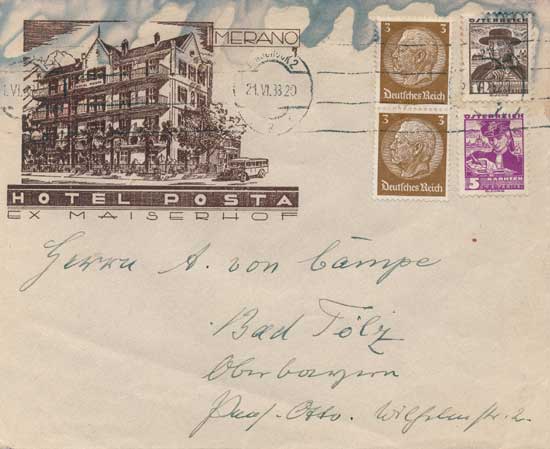 MERANO
HOTEL POSTA
EX MAISERHOF
INNSBRUCK 2
21. VI. 38. 20
VI. 3
3
3
Deutsches Reich
3
3
Deutsches Reich
ÖSTERREICH
ÖSTERREICH
5
KÄRNTEN
Herrn A. von Campe
Bad Tölz
Oberbayern
Otto. Wilhelmstr. 2.